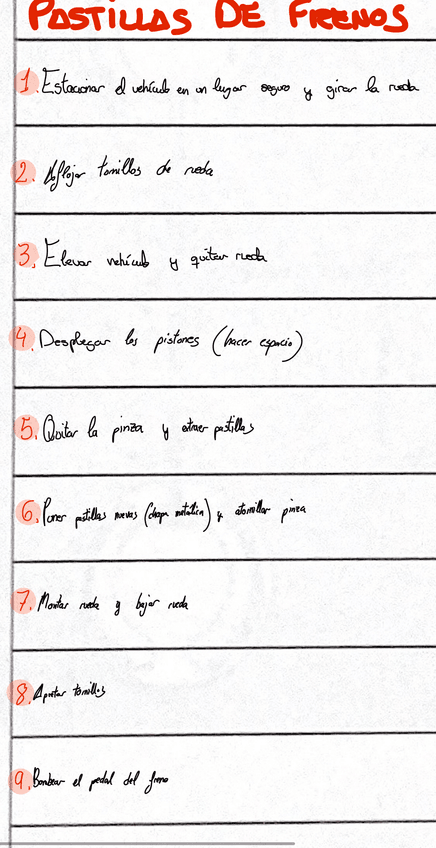 PASTILLAS DE FRENOS
1. Estacionar el vehículo en un lugar seguro y girar la rueda
2. Aflojar tornillos de rueda
3. Elevar vehículo y quitar rueda
4. Desplegar los pistones (hacer espacio)
5. Quitar la pinza y extraer pastillas
6. Poner pastillas nuevas (chapa metálica) y atornillar pinza
7. Montar rueda y bajar rueda
8. Apretar tornillos
9. Bombear el pedal del freno